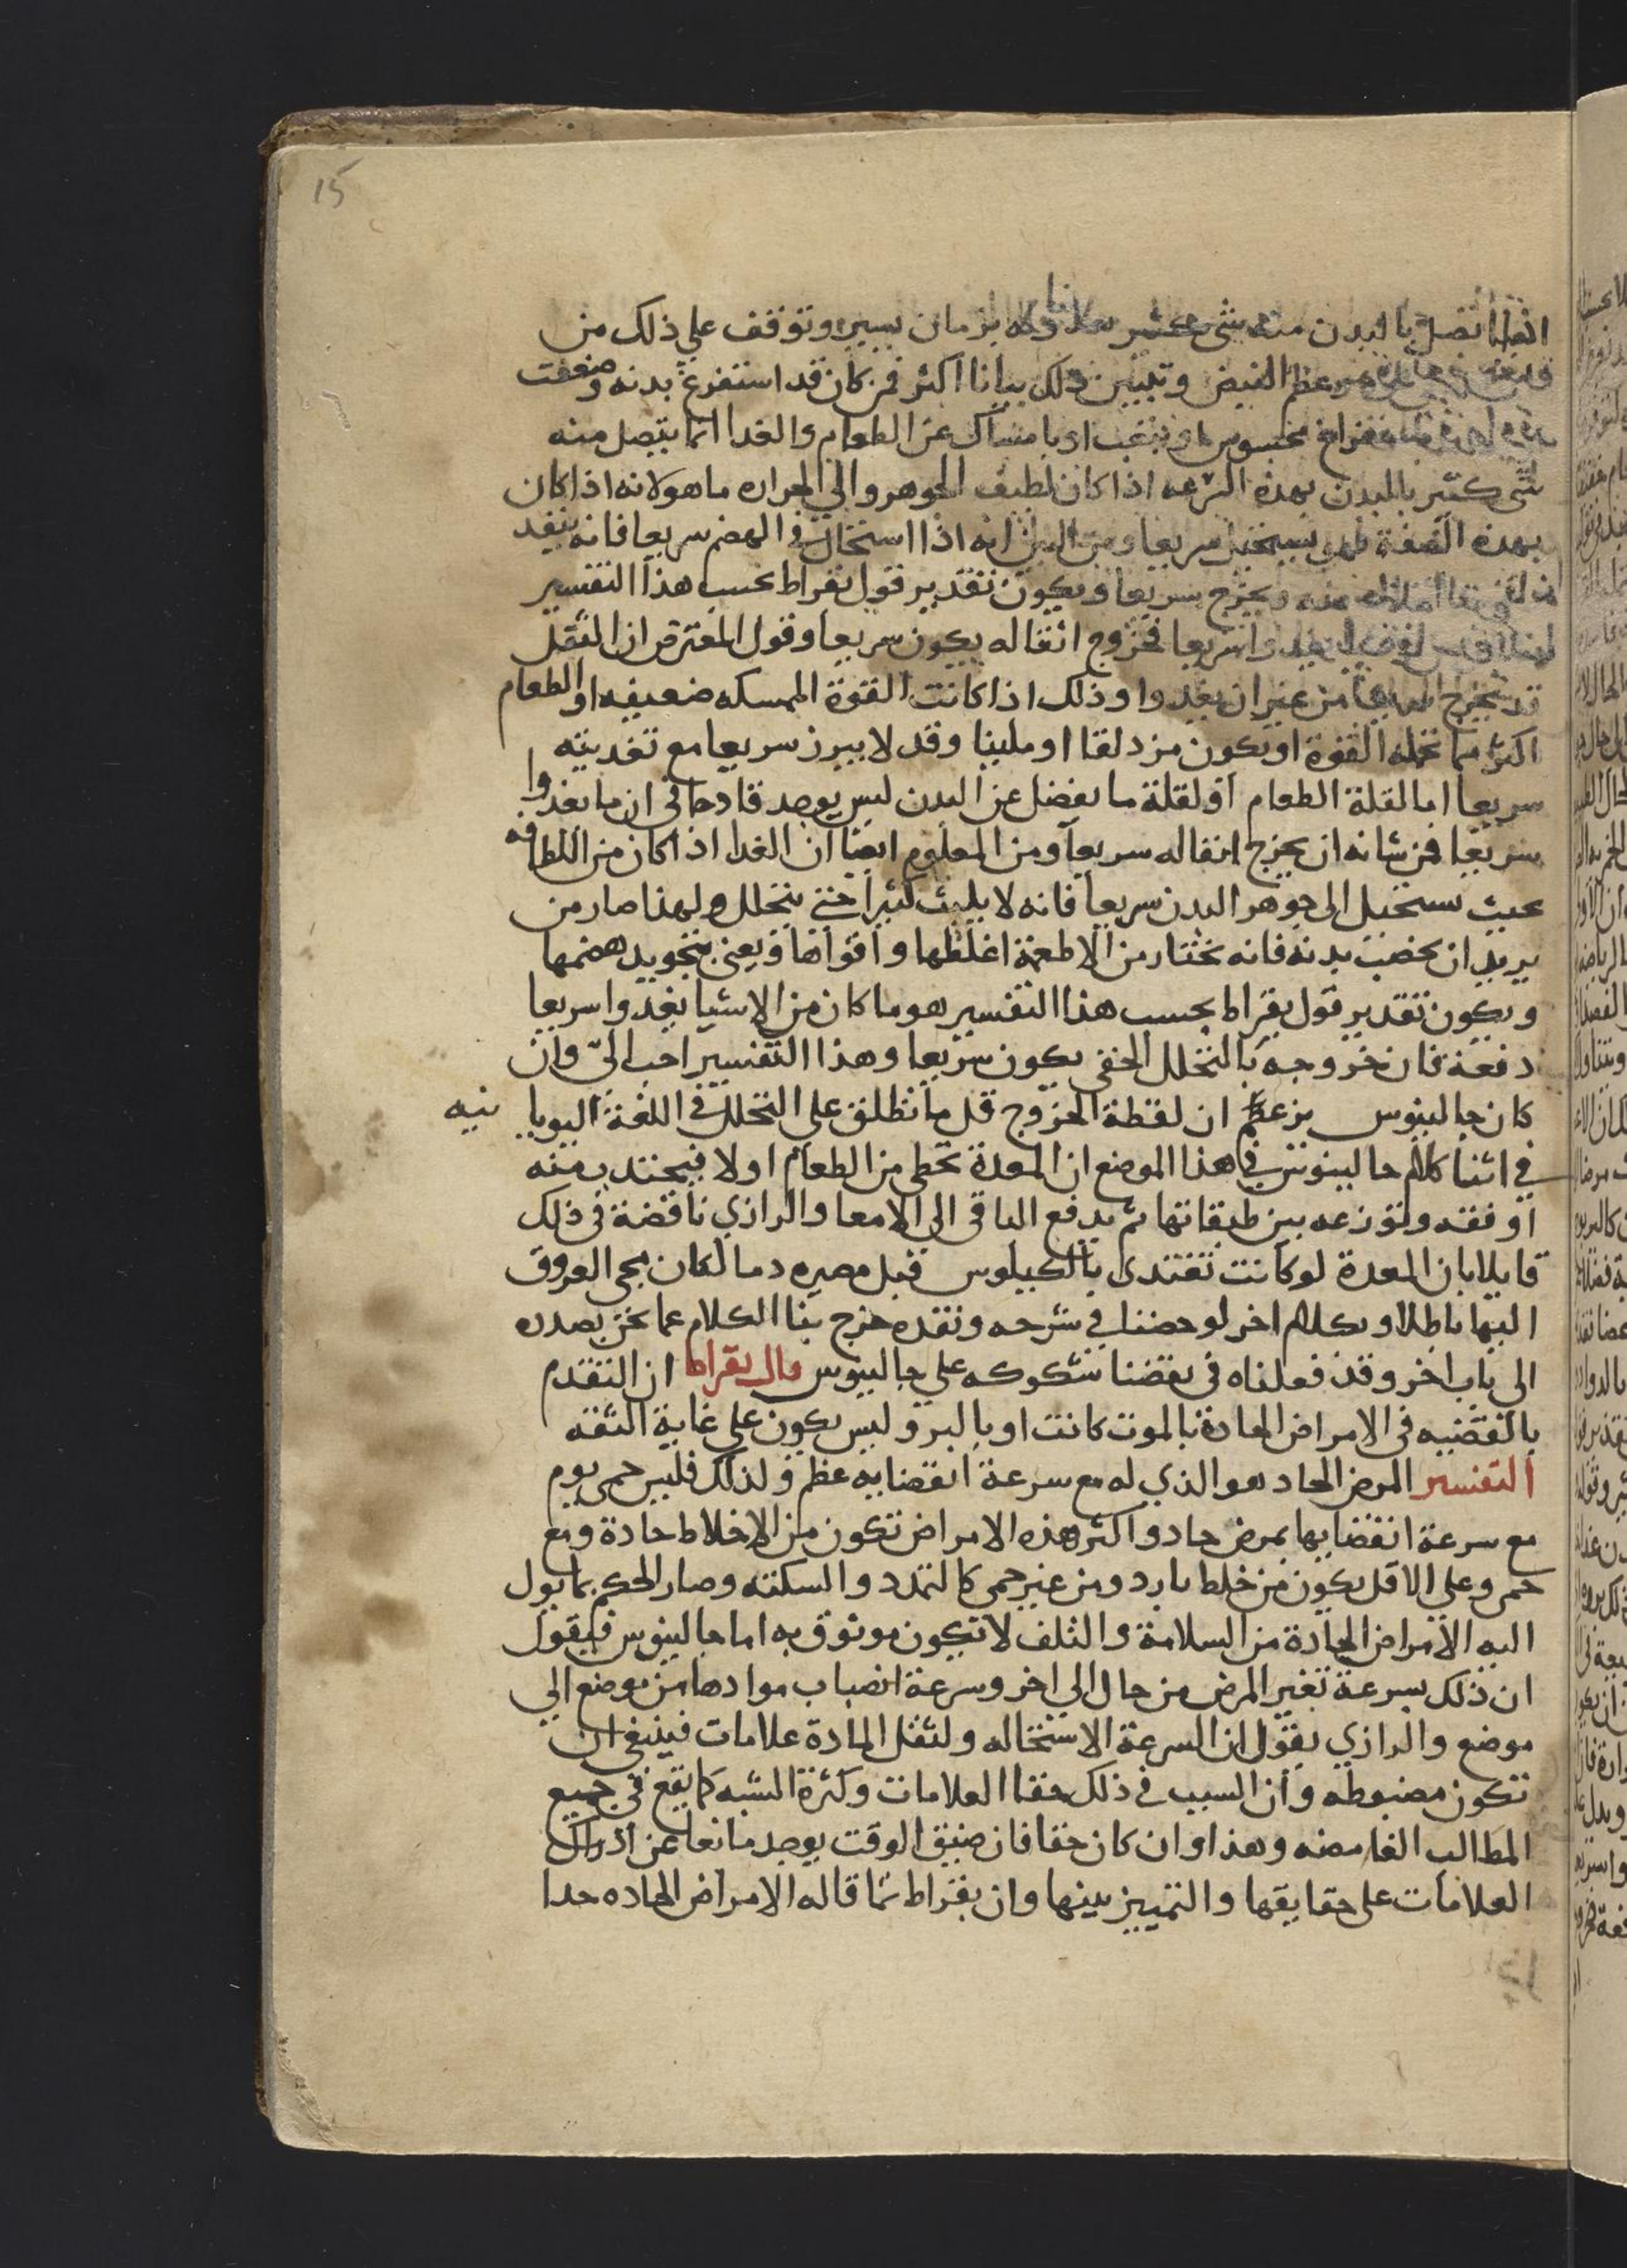 15
اتصل بالبدن منه شى بزمان يسير وتوقف علي ذلك من
عظم النبض وتبين ذلك بيانا اكثر فمن كان قد استفرغ بدنه وضعفت
محسوس او بتعب او بامساك عن الطعام والغدا انما يتصل منه
شى كثير بالبدن بهذه السرعه اذا كان لطيف الجوهر والي الحراره ما هو لانه اذا كان
بهذه الصفة فهو يستحيل سريعا ومن البين انه اذا استحال في الهضم سريعا فانه ينفد
منه ويخرج سريعا ويكون تقدير قول بقراط بحسب هذا التفسير
سريعا فخروج اثفاله يكون سريعا وقول المعترض ان الثفل
قد يخرج سريعا من غير ان يغدوا وذلك اذا كانت القوة الممسكه ضعيفه او الطعام
اكثر مما تحمله القوة او يكون مزدلقا او ملينا وقد لا يبرز سريعا مع تغديته
سريعا اما لقلة الطعام او لقلة ما يفضل عن البدن ليس يوجد قادحا في ان ما يغدوا
سريعا فمن شانه ان يخرج اثفاله سريعا ومن المعلوم ايضا ان الغدا اذا كان من اللطافه
بحيث يستحيل الى جوهر البدن سريعا فانه لا يلبث كثيرا حتى يتحلل ولهذا صار من
يريد ان يخصب بدنه فانه يختار من الاطعمة اغلظها واقواها ويعنى بتجويد هضمها
ويكون تقدير قول بقراط بحسب هذا التفسير هو ما كان من الاشيا يغدوا سريعا
دفعة فان خروجه بالتحلل الخفى يكون سريعا وهذا التفسير احب اليّ وان
كان جالينوس يزعم ان لفظة الخروج قل ما تطلق على التحلل في اللغة اليونا نيه
في اثنا كلام جالينوس في هذا الموضع ان المعدة تحظى من الطعام اولا فيجتدب منه
اوفقه وتوزعه بين طبقاتها ثم يدفع الباقي الى الامعا والرازي ناقضة فى ذلك
قايلا بان المعدة لو كانت تغتدى بالكيلوس قبل مصيره دما لكان مجى العروق
اليها باطلا وبكلام اخر لو خضنا في شرحه ونقده خرج بنا الكلام عما نحن بصدده
الى باب اخر وقد فعلناه فى نقضنا شكوكه على جالينوس قال بقراط ان التقدم
بالقضيه فى الامراض الحادة بالموت كانت او بالبرو ليس يكون علي غاية الثقه
التفسير المرض الحاد هو الذي له مع سرعة انقضايه عظم ولذلك فليس حمى يوم
مع سرعة انقضايها بمرض حاد واكثر هذه الامراض تكون من الاخلاط حادة ومع
حمى وعلى الاقل يكون من خلط بارد ومن غير حمى كالتمدد والسكته وصار الحكم بما يول
اليه الامراض الحادة من السلامة والتلف لا تكون موثوق به اما جالينوس فيقول
ان ذلك بسرعة تغير المرض من حال الي اخر وسرعة انصباب موادها من موضع الي
موضع والرازي يقول ان السرعة الاستحاله ولثقل المادة علامات فينبغى ان
تكون مضبوطه وان السبب في ذلك خفا العلامات وكثرة الشبه كما يقع فى جميع
المطالب الغامضه وهذا وان كان حقا فان ضيق الوقت يوجد مانعا عن ادراك
العلامات على حقايقها والتمييز بينها وان بقراط مما قاله الامراض الحاده حدا